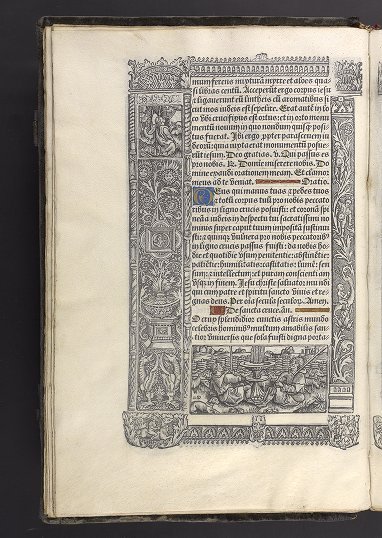 mum ferens mixturā myrre et aloes qua
si libras centū. Acceperūt ergo corpus iesu
⁊ ligauerunt eū lintheis cū aromatibus si
cut mos iudeis est sepelire. Erat autē in lo
co vbi crucifixus est ortus: et in orto monu
mentū nouum in quo nondum quisq̃ posi
tus fuerat. Ibi ergo ꝓpter parasceuen iu
deorū: quia iuxta erat monumentū posue
rūt iesum. Deo gratias. v. Qui passus es
pro nobis. R. Domine miserere nobis. Do
mine exaudi orationem meam. Et clamor
meus ad te veniat. Oratio.
Deus qui manus tuas ⁊ pedes tuos
⁊ totū corpus tuū pro nobis pecca
toribus in ligno crucis posuisti: et coronā spi
neā a iudeis in despectu tui sacratissimi no
minis super caput tuum impositā sustinui
sti: ⁊ quinqꝫ vulnera pro nobis peccatoribꝰ
in ligno crucis passus fuisti: da nobis ho
die et quotidie vsum penitentie: abstinētie:
patiētie: humilitatis: castitatis: lumē: sen
sum: ⁊ intellectum: et puram conscientiam
vsqꝫ in finem. Per te Jesu christe saluator mundi
qui cum patre et spiritu sancto viuis et re
gnas deus. Per oīa secula seculoꝝ. Amen.
De sancta cruce. añ.
O crux splendidior cunctis astris mundo
celebris hominibꝰ multum amabilis san
ctior vniuersis que sola fuisti digna porta